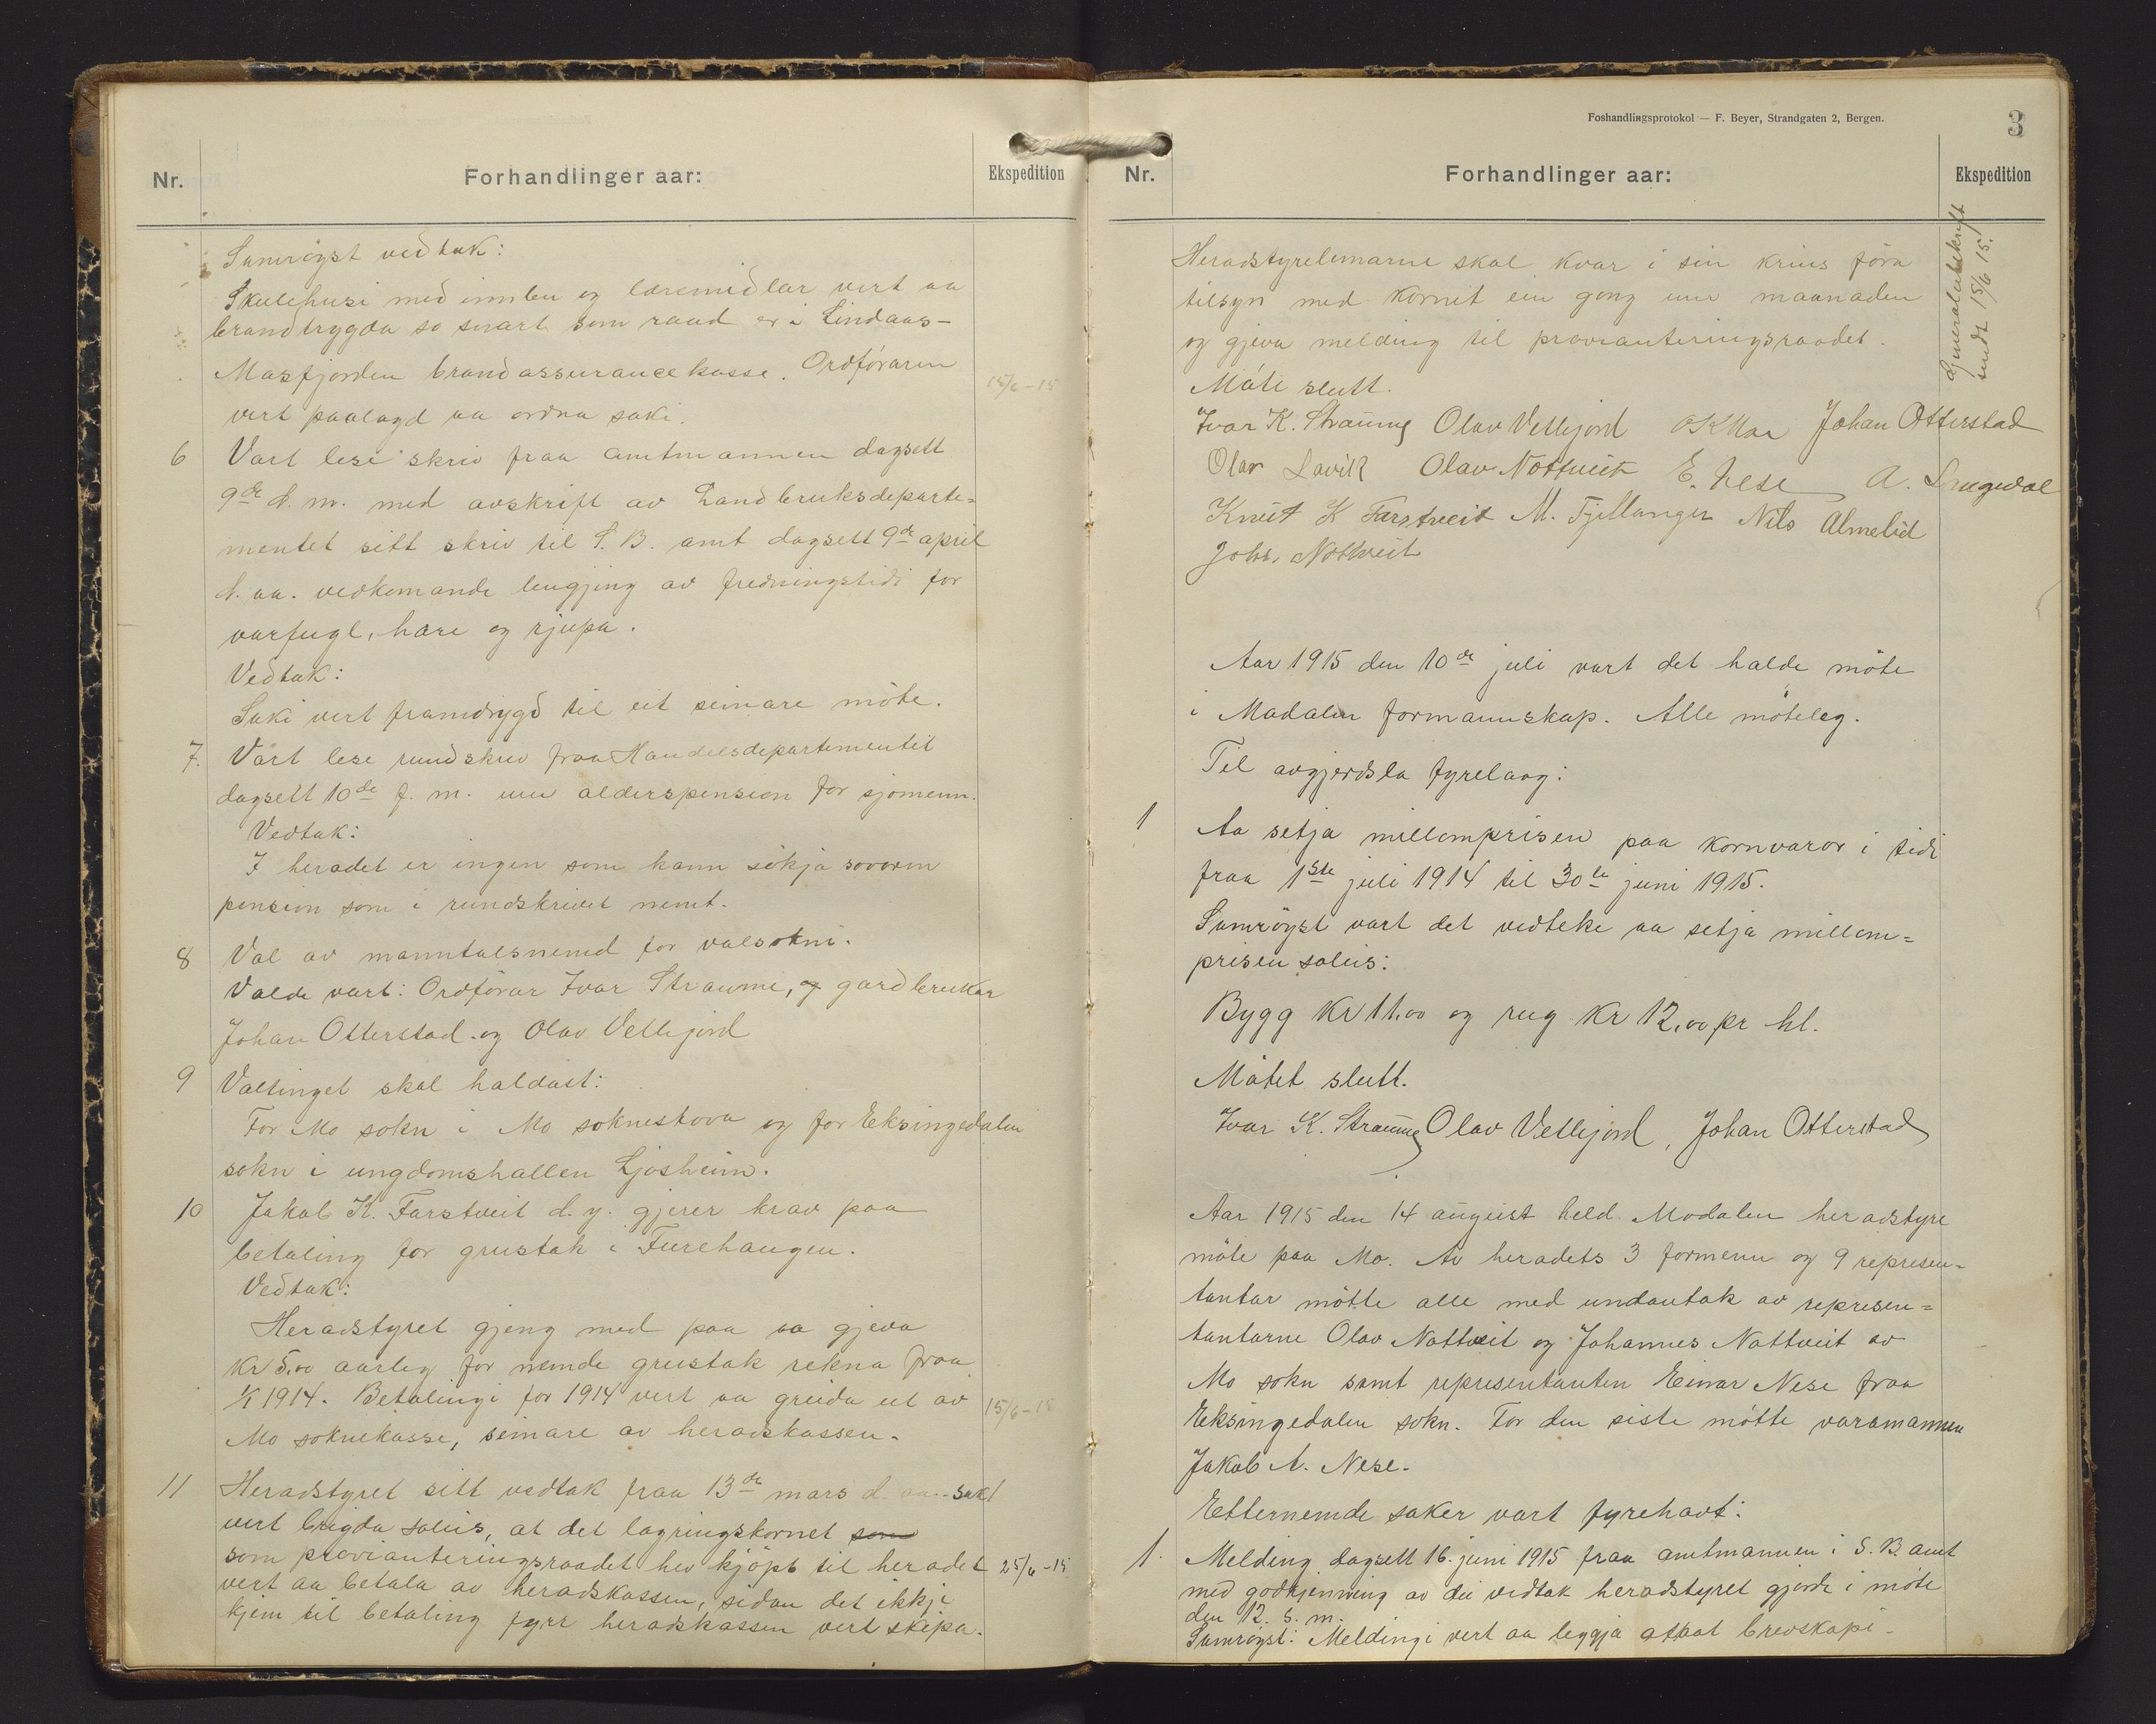 Nr.
Forhandlinger aar:
Ekspedition
Samrøyst vedtak:
Skulehusi med innbu og læremidlar vert aa
brandtrygda so snart som raad er i Lindaas-
Masfjorden brandassurancekasse. Ordføraren
vert paalagd aa ordna saki.
15/6-15
6 Vart lese skriv fraa amtmannen dagsett
9de d. m. med avskrift av Landbruksdeparte=
mentet sitt skriv til S. B. amt dagsett 9de april
d. aa. vedkomande lengjing av fredningstidi for
varfugl, hare og rjupa.
Vedtak:
Saki vert framdrygd til eit seinare møte.
7. Vart lese rundskriv fraa Handelsdepartementet
dagsett 10de f. m. um alderspension for sjømenn.
Vedtak:
I heradet er ingen som kann søkja sovoren
pension som i rundskrivet nemt.
8 Val av manntalsnemd for valsokni.
Valde vart: Ordførar Ivar Straume, og gardbrukar
Johan Otterstad og Olav Vetlejord
9 Valtinget skal haldast:
For Mo sokn i Mo soknestova og for Eksingedalen
sokn i ungdomshallen Ljosheim.
10 Jakob K. Farstveit d. y. gjerer krav paa
betaling for grustak i Furehaugen.
Vedtak:
Heradstyret gjeng med paa aa gjeva
kr 5.00 aarleg for nemde grustak rekna fraa
1/1 1914. Betalingi for 1914 vert aa greida ut av
15/6-15
Mo soknekasse, seinare av heradskassen.
11 Heradstyret sitt vedtak fraa 13de mars d. aa. sak 1
vert brigda soleis, at det lagringskornet som
som provianteringsraadet hev kjøpt til heradet
25/6-15
vert aa betala av heradskassen, sidan det ikkje
kjem til betaling fyrr heradskassen vert skipa.
Foshandlingsprotokol — F. Beyer, Strandgaten 2, Bergen.
3
Nr.
Forhandlinger aar:
Ekspedition
Heradstyrelemarne skal kvar i sin krins føra
tilsyn med kornet ein gong um maanaden
og gjeva melding til provianteringsraadet.
Generalutskrift
sendt 15/6 15.
Møte slutt.
Ivar K. Straume Olav Vetlejord OKMoe Johan Otterstad
Olav Lavik Olav Nottveit E. Nese A.
Knut K Farstveit M. Fjellanger Nils Almelid
Johs. Nottveit
Aar 1915 den 10de juli vart det halde møte
i Modalen formannskap. Alle møteleg.
Til avgjerdsla fyrelaag:
1 Aa setja millomprisen paa kornvaror i tidi
fraa 1ste juli 1914 til 30te juni 1915.
Samrøyst vart det vedteke aa setja millom=
prisen soleis:
Bygg kr 11,00 og rug kr 12,00 pr hl.
Møtet slutt.
Ivar K. Straume Olav Vetlejord, Johan Otterstad
Aar 1915 den 14 august held Modalen heradstyre
møte paa Mo. Av heradets 3 formenn og 9 represen=
tantar møtte alle med undantak av represen=
tantarne Olav Nottveit og Johannes Nottveit av
Mo sokn samt representanten Einar Nese fraa
Eksingedalen sokn. For den siste møtte varamannen
Jakob A. Nese.
Etternemde saker vart fyrehavt:
1. Melding dagsett 16. juni 1915 fraa amtmannen i S. B. amt
med godkjenning av dei vedtak heradstyret gjorde i møte
den 12. s. m.
Samrøyst: Meldingi vert aa leggja attaat brevskapi.